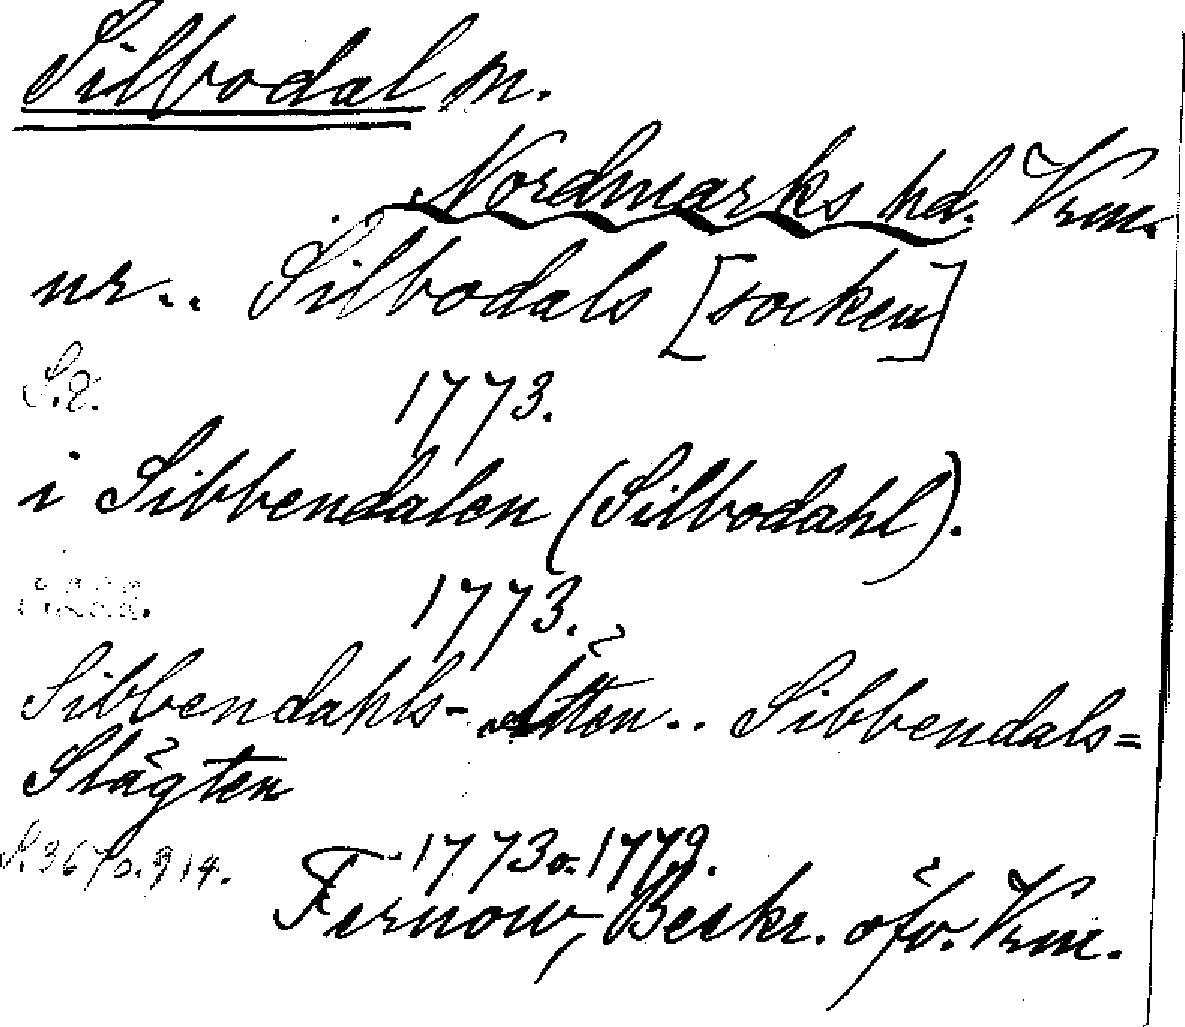 Silbodal sn.
Nordmarks hd. Vrm.
ur .. Silbodals [socken]
S. 8. 1773.
i Sibbendalen (Silbodahl).
1773.
Sibbendahls-Ätten .. Sibbendals=
Slägten
S. 367 o. 914. 1773 o. 1779.
Fernow, Beskr. öfv. Vrm.